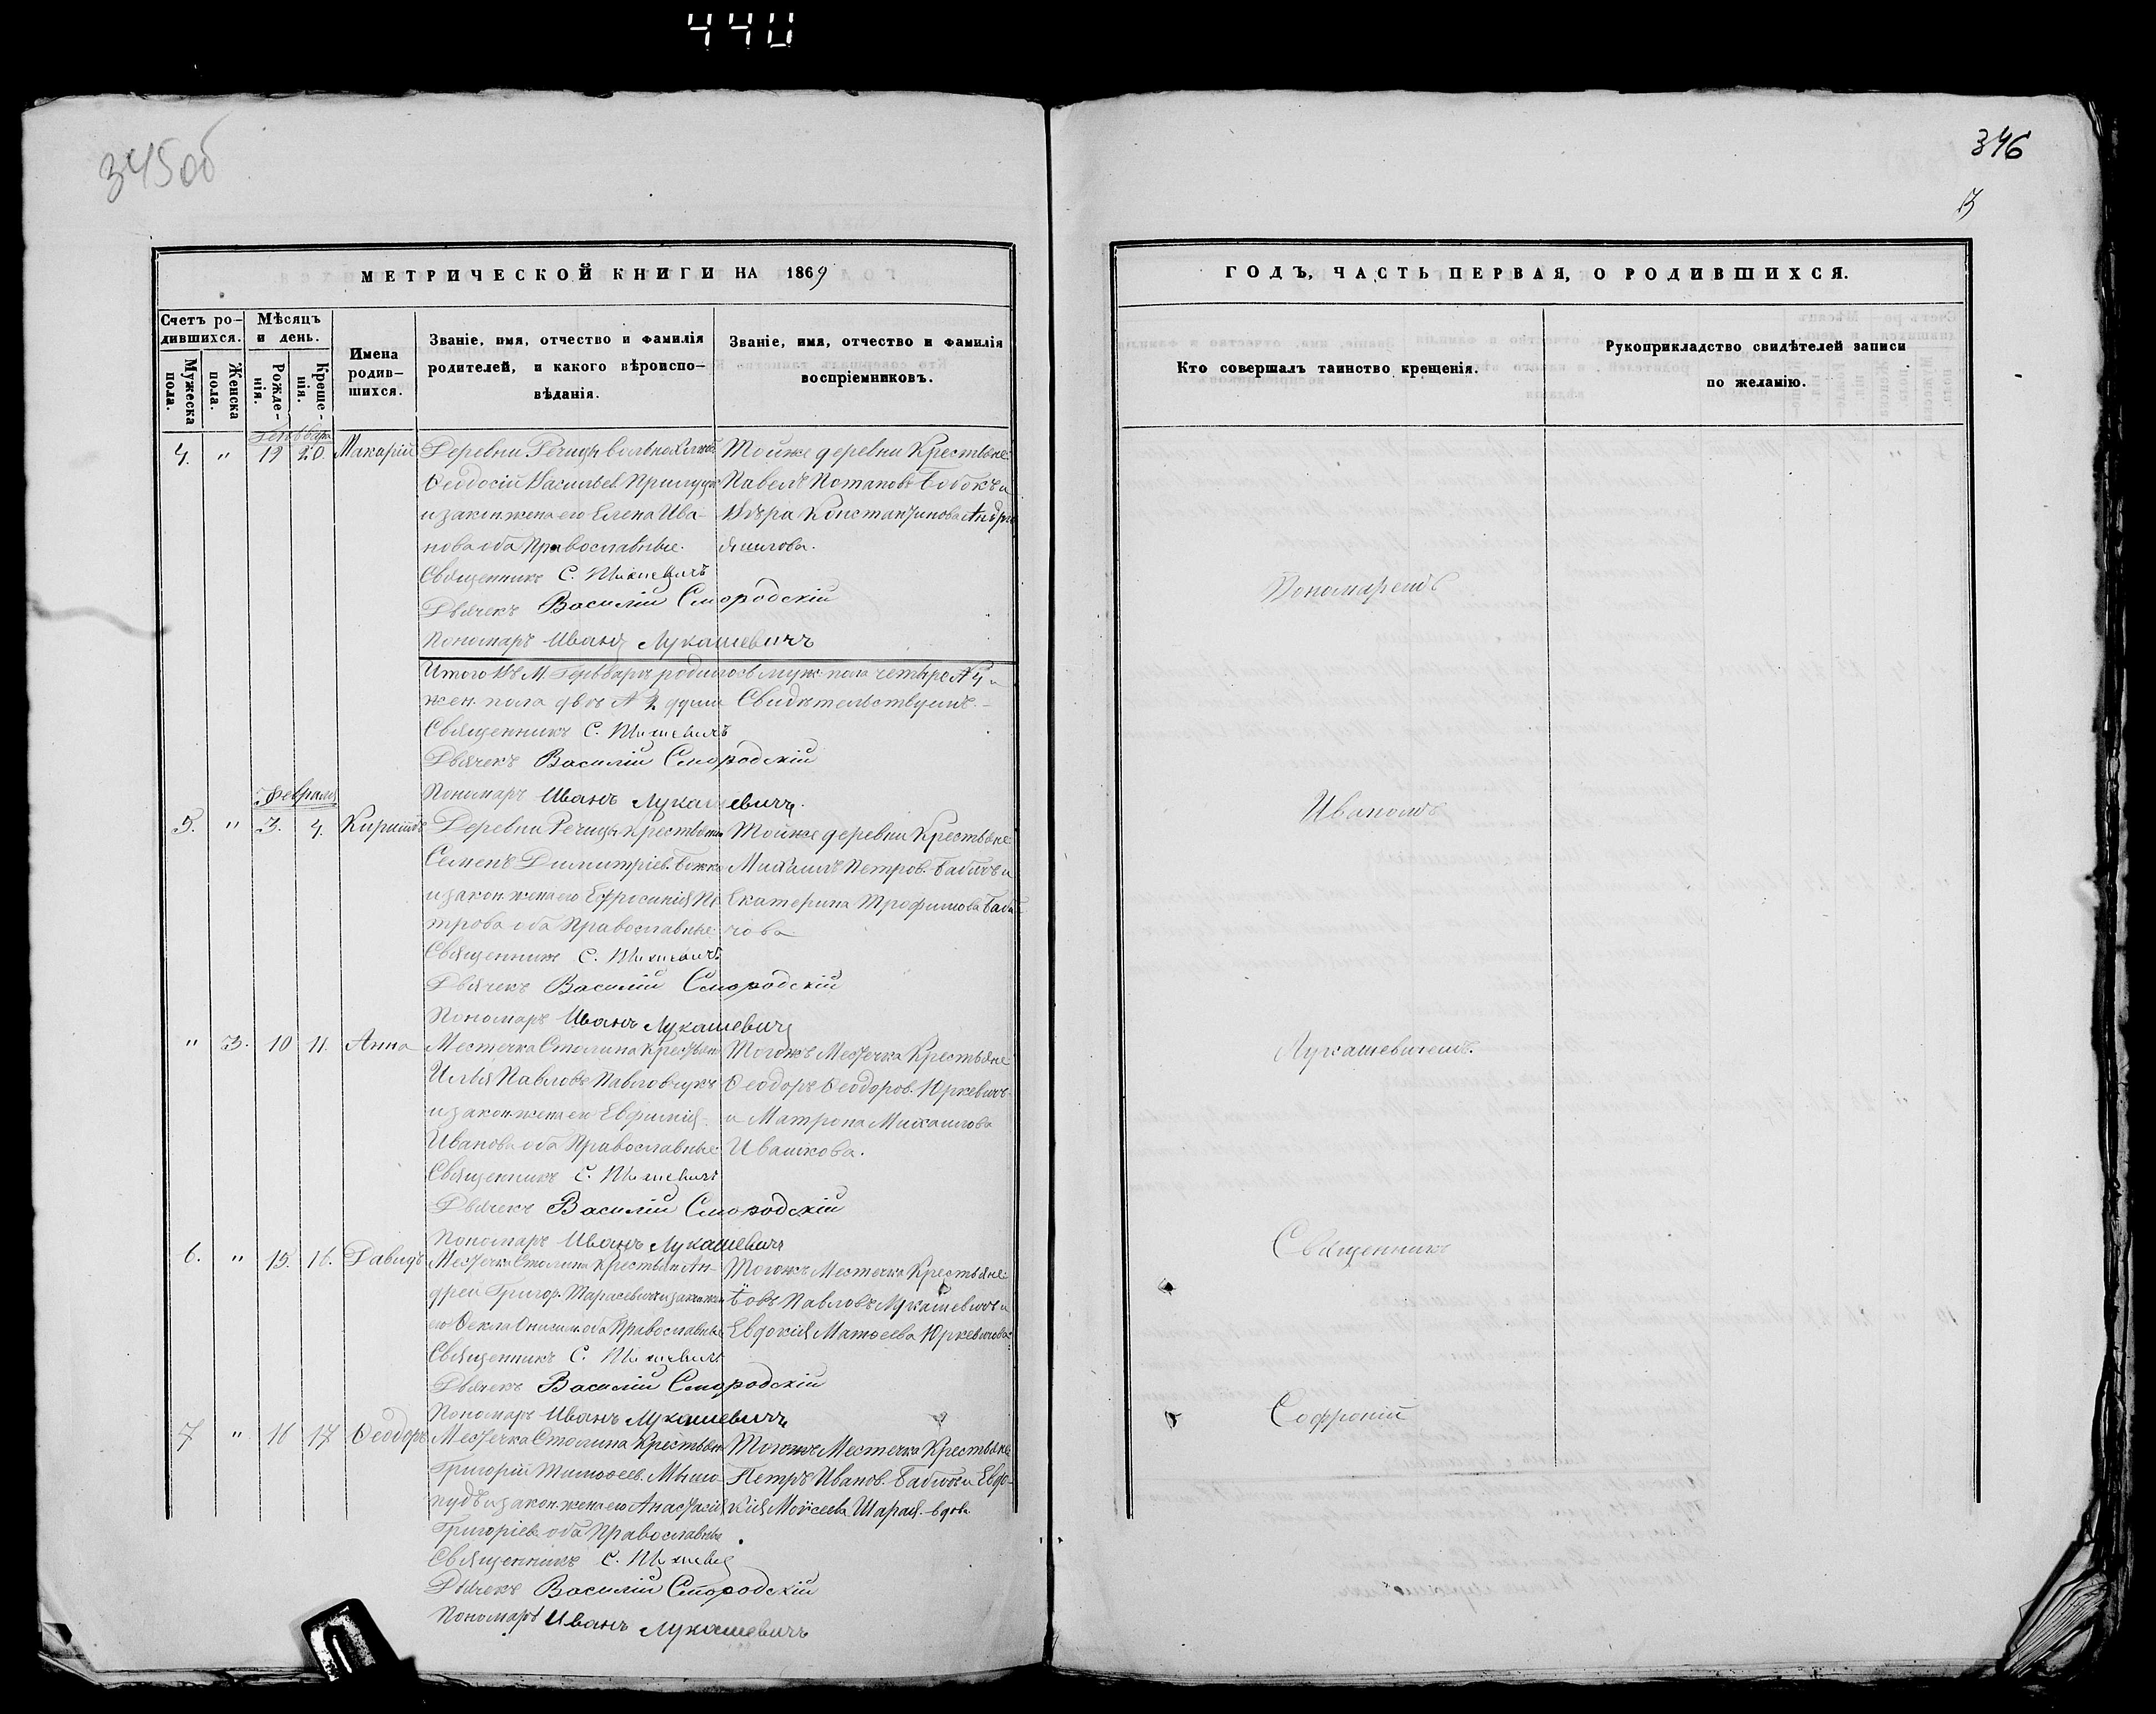 440
345об
МЕТРИЧЕСКОЙ КНИГИ НА 1869
Счетъ ро-
дившихся.
Мужеска
пола.
Женска
пола.
Мѣсяцъ
и день.
Рожде-
нія.
Креще-
нія.
Имена
родив-
шихся.
Званіе, имя, отчество и фамилія
родителей, и какого вѣроиспо-
вѣданія.
Званіе, имя, отчество и фамилія
воспріемниковъ.
4. " 19 20. Макарій
Деревни Речицы
Ѳеодосій Васильев
и закон. жена его Елена Ива-
нова оба Православные.
Тойже деревни Крестьяне:
Павелъ Потаповъ Бобокъ и
Вѣра Константинова Андре
яшлова.
Священникъ С.
Дьячекъ Василій Смородскій
Пономарь Иванъ Лукашевичъ
Итого въ М. Генварѣ родилось муж. пола четыре № 4 и
жен. пола двѣ № 2 души Свидѣтельствуемъ.
Священникъ С.
Дьячекъ Василій Смородскій
Пономарь Иванъ Лукашевичъ.
Февраля
5. " 3. 4. Кириллъ
Деревни Речицы Крестьянин
Семенъ Димитріев. Божко
и закон. жена его Ефросинія Пе
трова оба Православные
Тойже деревни Крестьяне:
Михаилъ Петров. Бабичъ и
Екатерина Трофимова Баби
чова
Священникъ С.
Дьячекъ Василій Смородскій
Пономарь Иванъ Лукашевичъ
" 3. 10 11. Анна
Местечка Столина Крестьян
Илья Павловъ Павловчукъ
и закон. жена его Евфимія
Иванова оба Православные
Тогожъ Местечка Крестьяне:
Ѳеодоръ Ѳеодоров. Юркевичъ
и Матрона Михаилова
Ивашкова.
Священникъ С.
Дьячекъ Василій Смородскій
Пономарь Иванъ Лукашевичъ
6. " 15. 16. Давидъ
Местечка Столина Крестьян. Ан-
дрей Григор. Тарасевичъ и закон. жен
его Ѳекла Онисим. оба Православные
Тогожъ Местечка Крестьяне:
Іовъ Павловъ Лукашевичъ и
Евдокія Матѳеева Юркевичова.
Священникъ С.
Дьячекъ Василій Смородскій
Пономарь Иванъ Лукашевичъ
7 " 16 17 Ѳеодоръ
Местечка Столина Крестьян
Григорій Тимоѳеев.
и закон. жена его Анастасія
Григоріев. оба Православные
Тогожъ Местечка Крестьяне
Петръ Иванов. Бабичъ и Евдо-
кія Моисеева Шарая. вдова
Священникъ С.
Дьячекъ Василій Смородскій
Пономарь Иванъ Лукашевичъ
346
ГОДЪ, ЧАСТЬ ПЕРВАЯ, О РОДИВШИХСЯ.
Кто совершалъ таинство крещенія.
Рукоприкладство свидѣтелей записи
по желанію.
Пономаремъ
Иваномъ
Лукашевичемъ.
Священникъ
Софроній